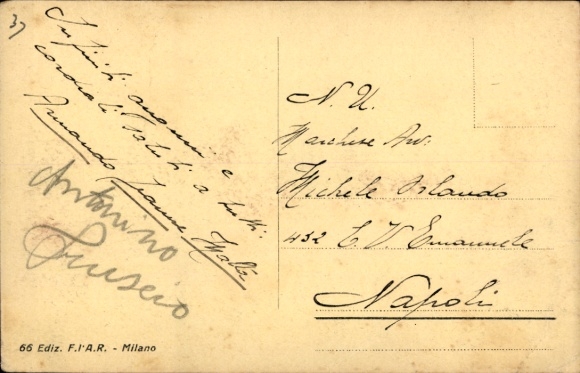 37
Infiniti auguri e
cordiali saluti a tutti.
Armando
Antonino
N. U.
Marchese Avv.
Michele Orlando
432 C. V. Emanuele
Napoli
66 Ediz. F.I.A.R. - Milano